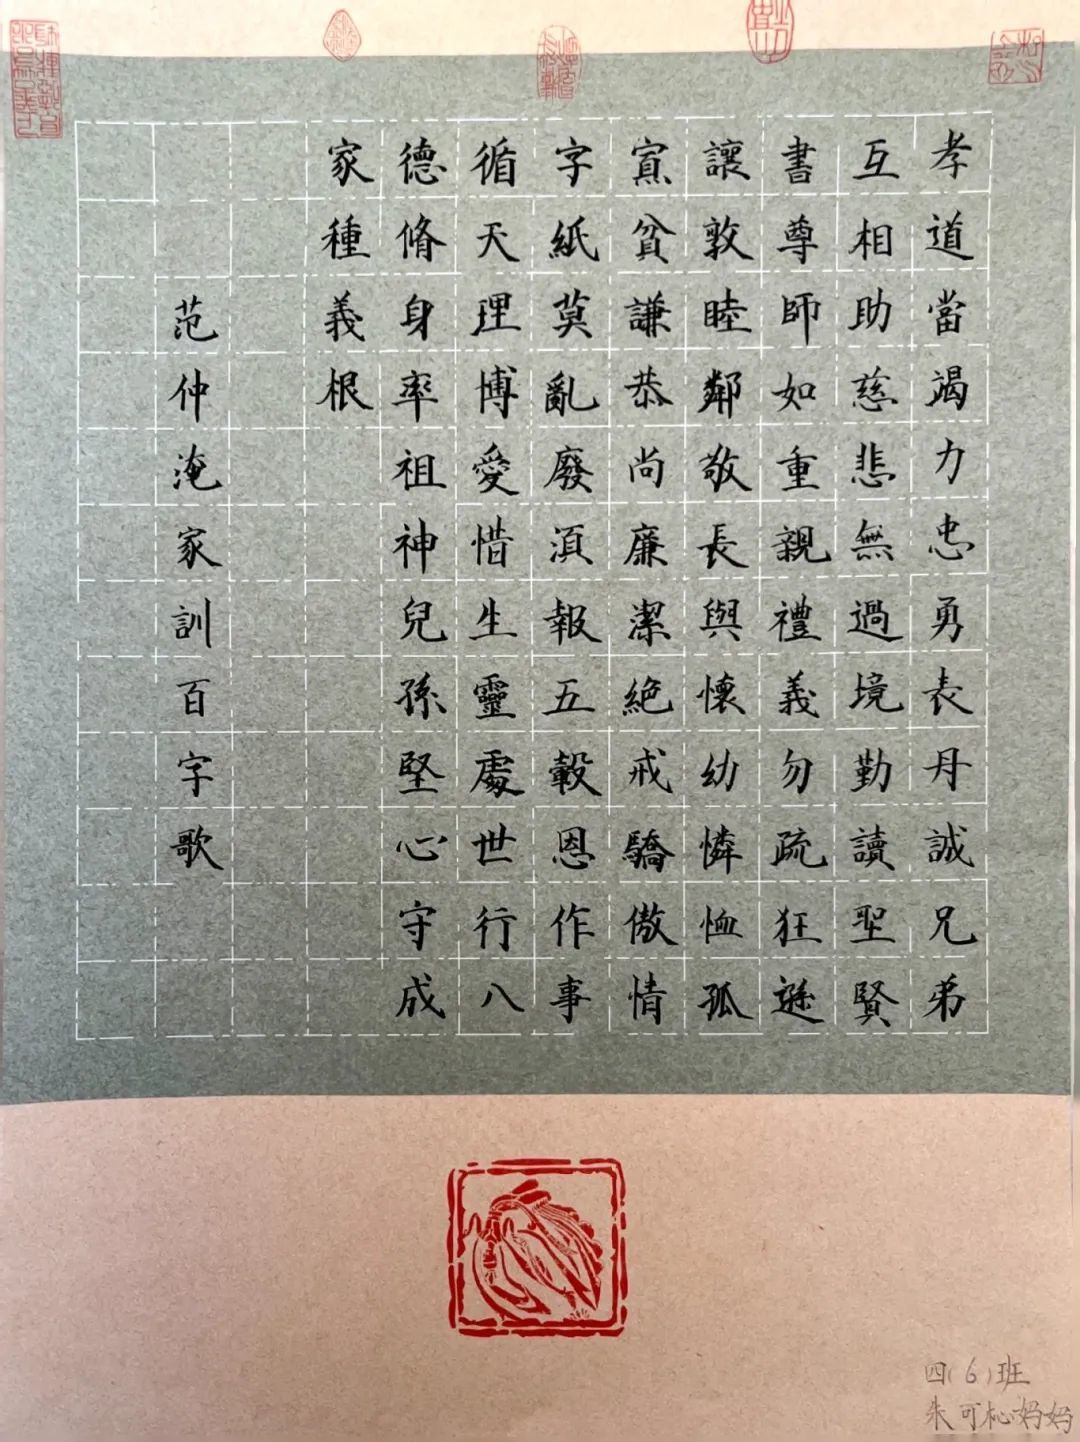 孝道當竭力忠勇表丹誠兄弟
互相助慈悲無過境勤讀聖賢
書尊師如重親禮義勿疏狂遜
讓敦睦鄰敬長與懷幼憐恤孤
寡貧謙恭尚廉潔絕戒驕傲情
字紙莫亂廢須報五穀恩作事
循天理博愛惜生靈處世行八
德脩身率祖神兒孫堅心守成
家種義根
范仲淹家訓百字歌
四(6)班
朱可杺妈妈